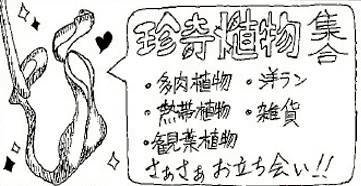 珍奇植物集合
・多肉植物 ・洋ラン
・熱帯植物 ・雑貨
・観葉植物
さぁさぁ お立ち会い!!